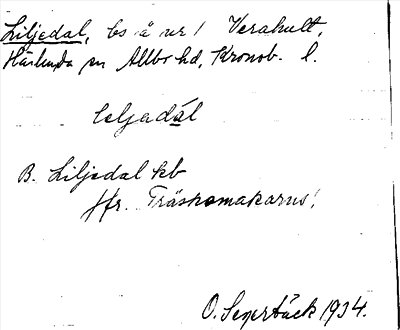 Liljedal, bs å nr 1 Verahult,
Härlunda sn Allbo hd, Kronob. l.
lıljadál
B. Liljedal kb
Jfr. Träskomakarns!
O. Segerbäck 1934.